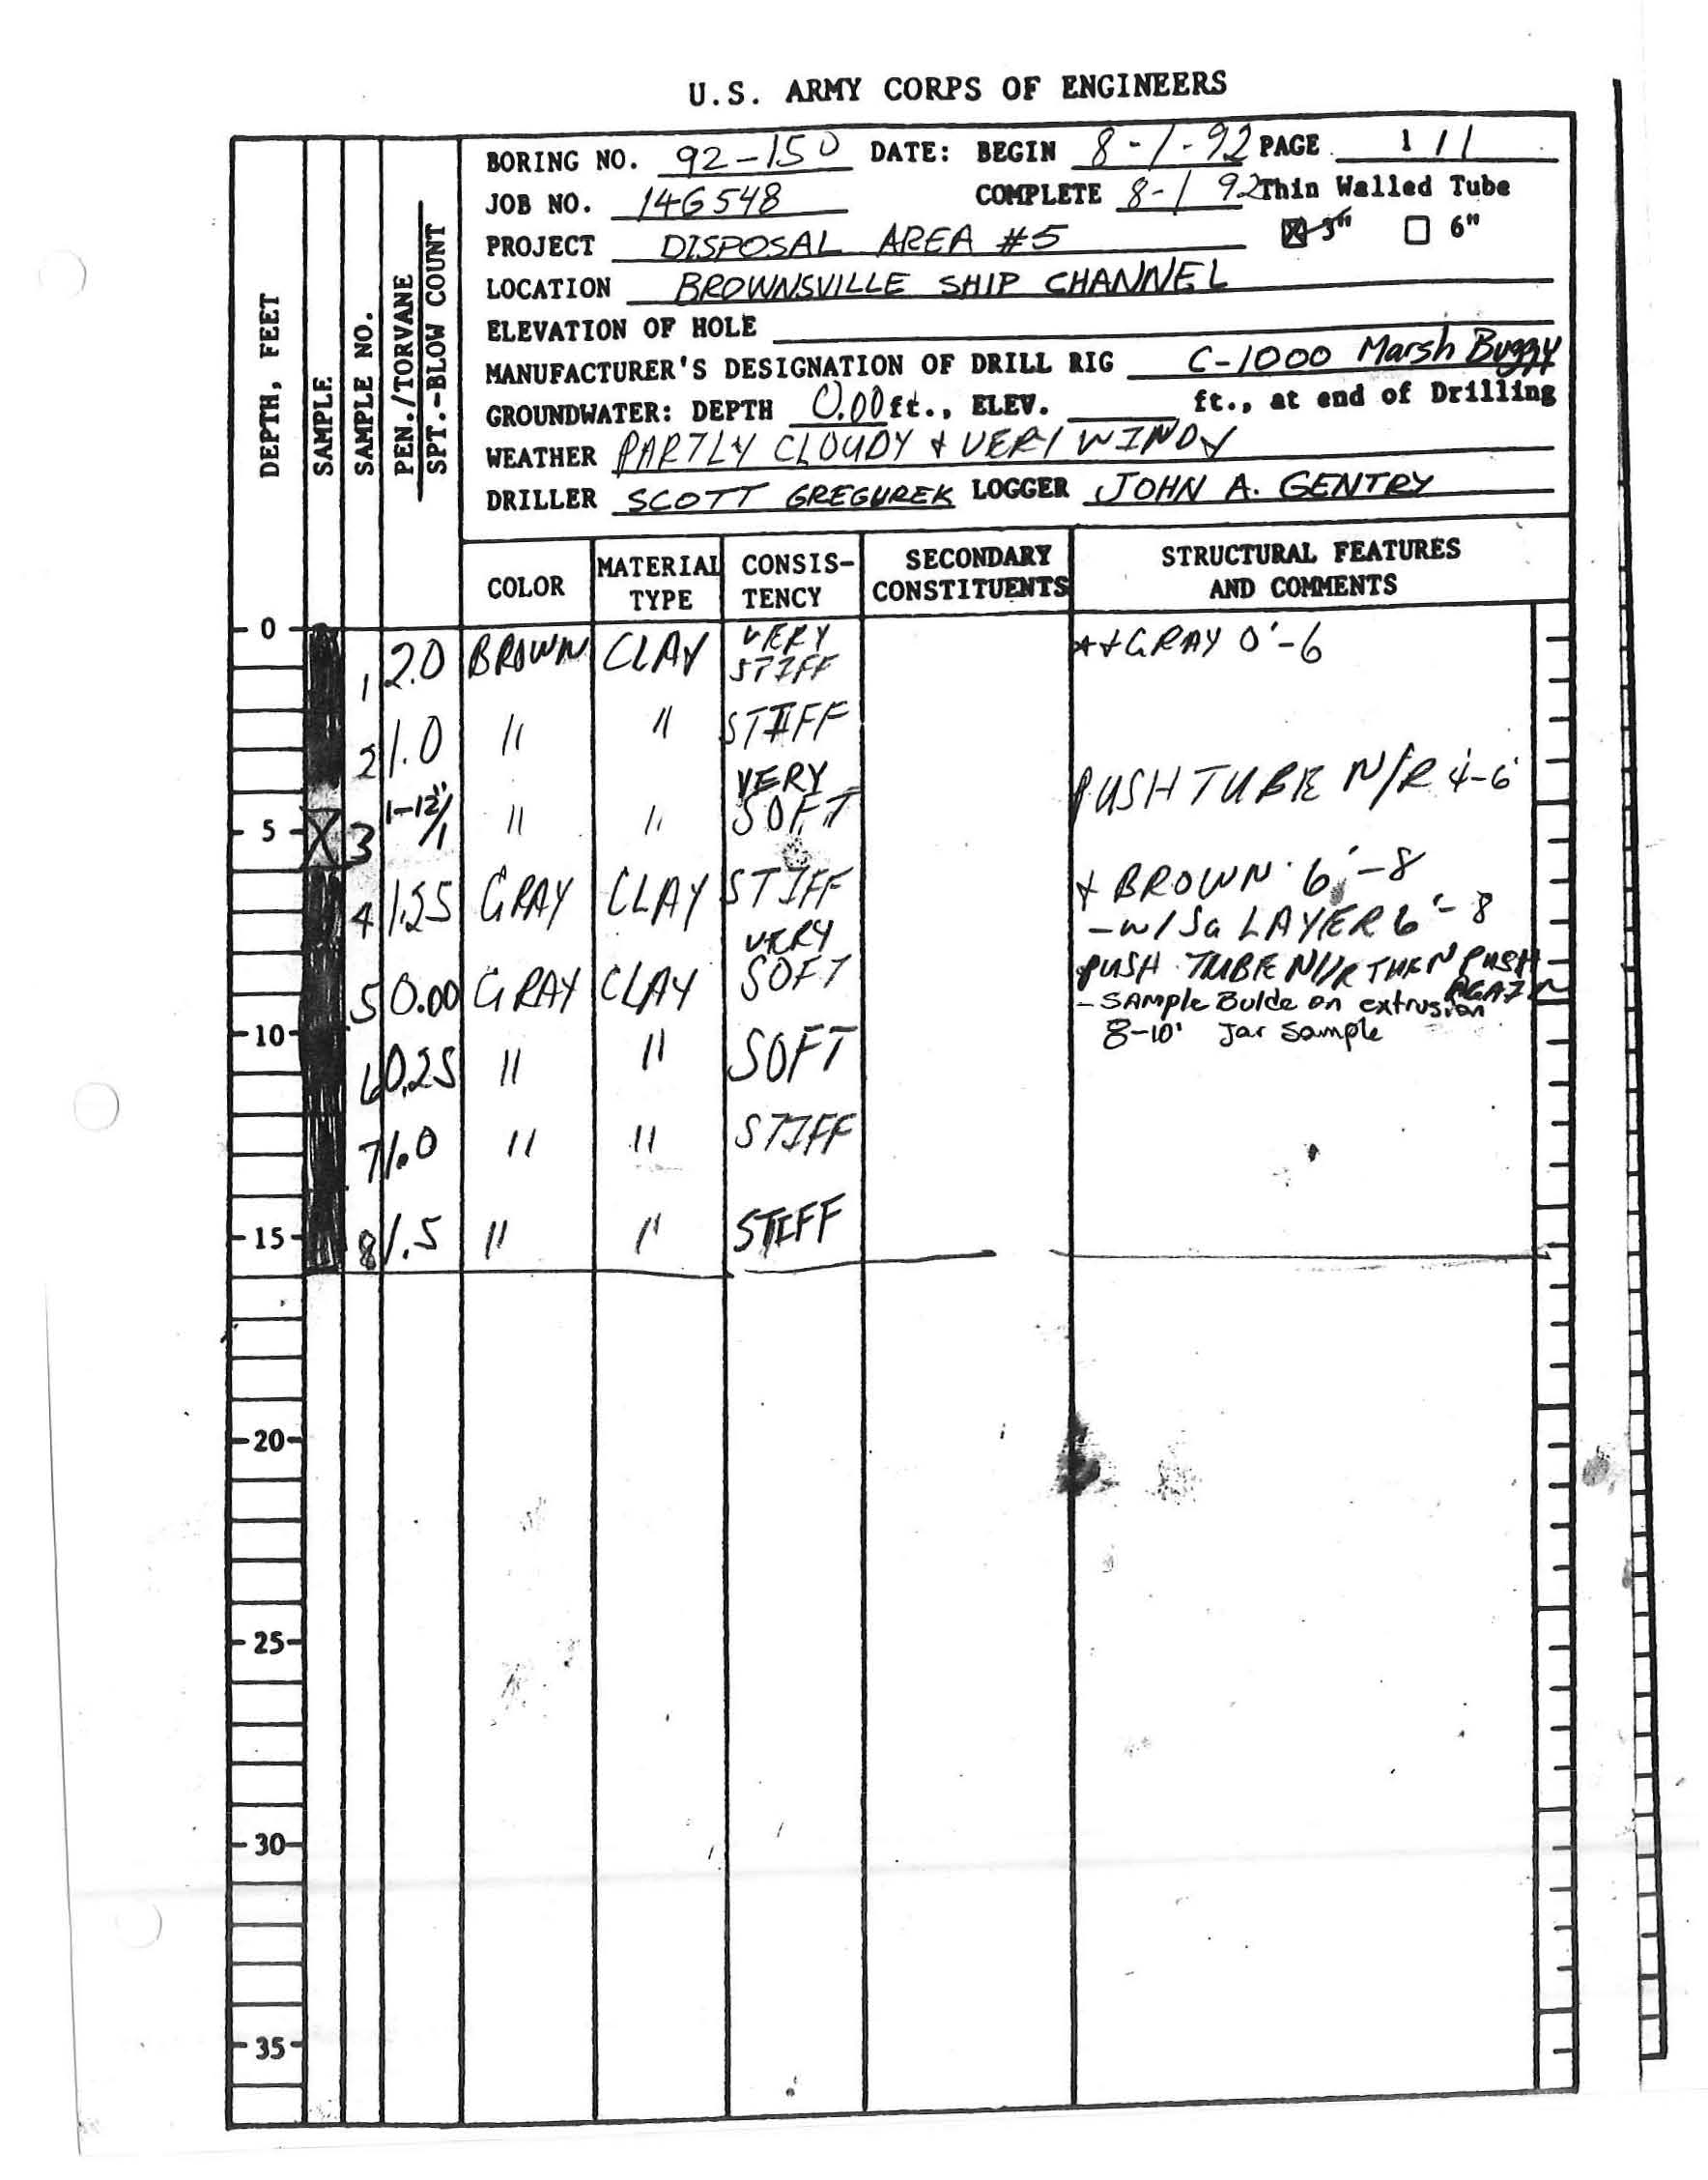 U.S. ARMY CORPS OF ENGINEERS
BORING NO. 92-150 DATE: BEGIN 8-1-92 PAGE 1 / 1
JOB NO. 14G548 COMPLETE 8-1 92 Thin Walled Tube
PROJECT DISPOSAL AREA #5 3" 6"
LOCATION BROWNSVILLE SHIP CHANNEL
ELEVATION OF HOLE
MANUFACTURER'S DESIGNATION OF DRILL RIG C-1000 Marsh Buggy
GROUNDWATER: DEPTH 0.00 ft., ELEV. ft., at end of Drilling
WEATHER PARTLY CLOUDY + VERY WINDY
DRILLER SCOTT GREGUREK LOGGER JOHN A. GENTRY
DEPTH, FEET
SAMPLE
SAMPLE NO.
PEN./TORVANE
SPT.-BLOW COUNT
COLOR
MATERIAL
TYPE
CONSIS-
TENCY
SECONDARY
CONSTITUENTS
STRUCTURAL FEATURES
AND COMMENTS
0
1 2.0 BROWN CLAY VERY
STIFF
*+GRAY 0'-6
2 1.0 " " STIFF
5 3 1-12"/1 " " VERY
SOFT
PUSH TUBE N/R 4-6'
4 1.25 GRAY CLAY STIFF
+ BROWN 6'-8
-w/Sa LAYER 6'-8
5 0.00 GRAY CLAY VERY
SOFT
PUSH TUBE N/R THEN PUSH
AGAIN
- SAMPle Bulde on extrusion
8-10' Jar Sample
10
6 0.25 " " SOFT
7 1.0 " " STIFF
15 8 1.5 " " STIFF
20
25
30
35